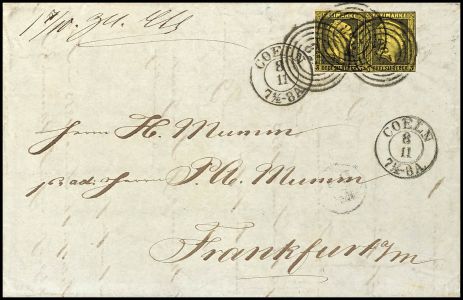 FREIMARKE FREIMARKE
COELN
8
11
7½-8A.
COELN
8
11
7½-8A.
Herrn H. Mumm
Herrn P. A. Mumm
Frankfurt a/m